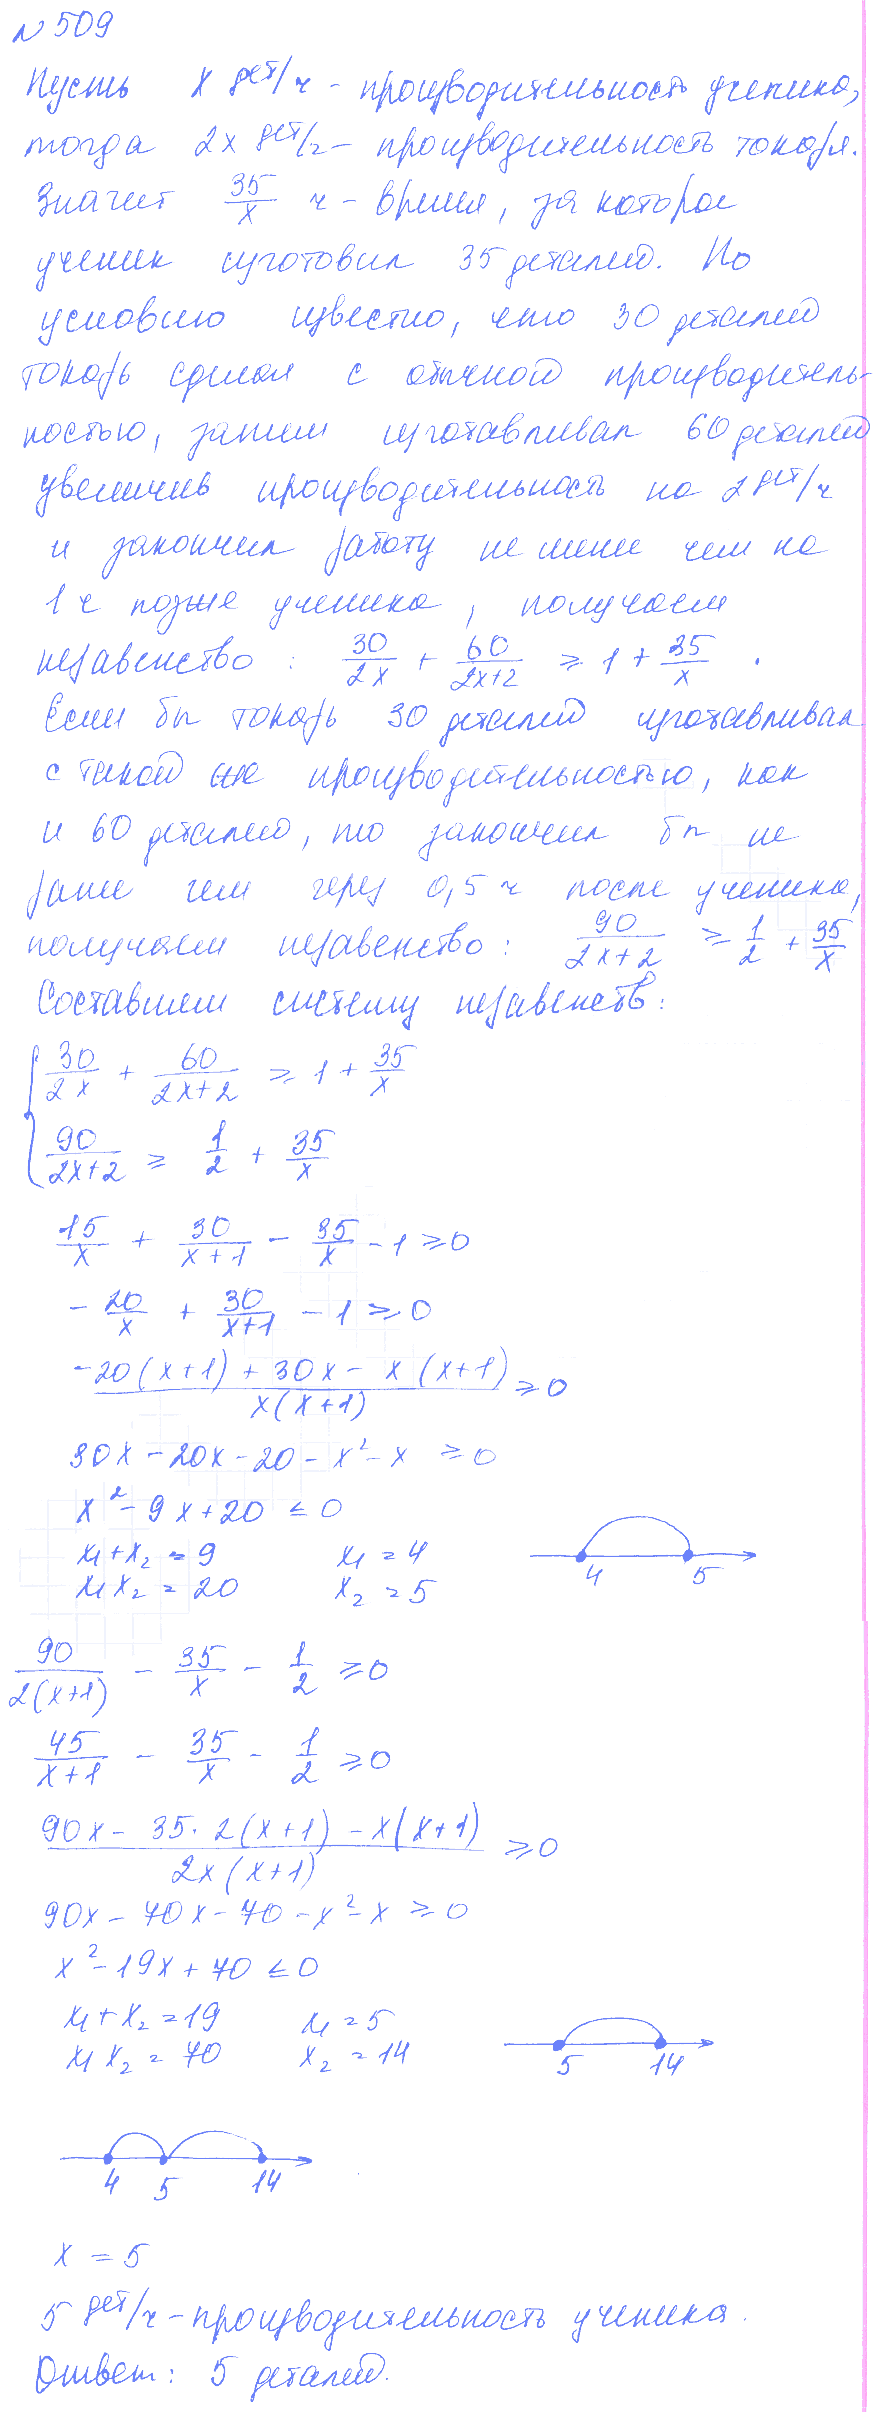 №509
Пусть x дет/ч - производительность ученика,
тогда 2x дет/ч - производительность токаря.
Значит 35/x ч - время, за которое
ученик изготовил 35 деталей. По
условию известно, что 30 деталей
токарь сделал с обычной производитель-
ностью, затем изготавливал 60 деталей
увеличив производительность на 2 дет/ч
и закончил работу не менее чем на
1 ч позже ученика, получаем
неравенство: 30/2x + 60/(2x+2) ≥ 1 + 35/x.
Если бы токарь 30 деталей изготавливал
с такой же производительностью, как
и 60 деталей, то закончил бы не
ранее чем через 0,5 ч после ученика,
получаем неравенство: 90/(2x+2) ≥ 1/2 + 35/x
Составим систему неравенств:
{ 30/2x + 60/(2x+2) ≥ 1 + 35/x
90/(2x+2) ≥ 1/2 + 35/x
15/x + 30/(x+1) - 35/x - 1 ≥ 0
-20/x + 30/(x+1) - 1 ≥ 0
(-20(x+1) + 30x - x(x+1))/(x(x+1)) ≥ 0
30x - 20x - 20 - x² - x ≥ 0
x² - 9x + 20 ≤ 0
x₁ + x₂ = 9 x₁ = 4
x₁x₂ = 20 x₂ = 5
4 5
90/(2(x+1)) - 35/x - 1/2 ≥ 0
45/(x+1) - 35/x - 1/2 ≥ 0
(90x - 35·2(x+1) - x(x+1))/(2x(x+1)) ≥ 0
90x - 70x - 70 - x² - x ≥ 0
x² - 19x + 70 ≤ 0
x₁ + x₂ = 19 x₁ = 5
x₁x₂ = 70 x₂ = 14
5 14
4 5 14
x = 5
5 дет/ч - производительность ученика.
Ответ: 5 деталей.